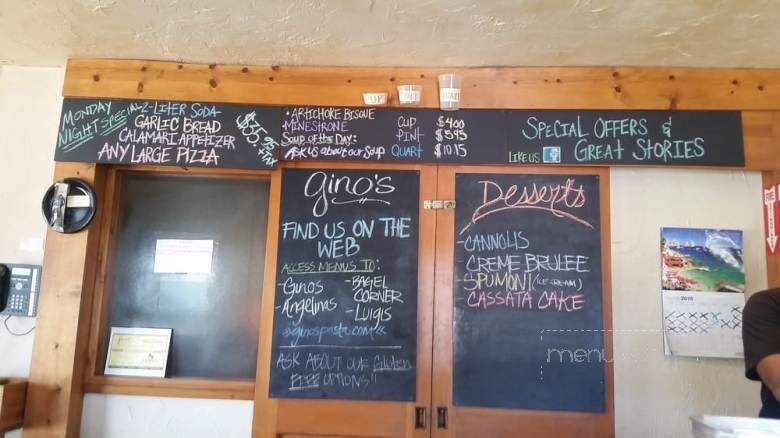 MONDAY
NIGHT SPECIAL
2-LITER SODA
GARLIC BREAD
CALAMARI APPETIZER
ANY LARGE PIZZA
+TAX
• ARTICHOKE BISQUE
• MINESTRONE
SOUP of the DAY:
ASK US about our SOUP
CUP $4.00
PINT $5.95
QUART $10.15
SPECIAL OFFERS &
GREAT STORIES
LIKE US
gino's
FIND US ON THE
WEB
ACCESS MENUS TO:
- Ginos
- Angelinas
- BAGEL
CORNER
- LUIGIS
ASK ABOUT OUR Gluten
FREE OPTIONS!!
Desserts
- CANNOLIS
CREME BRULEE
- SPUMONI (ICE CREAM)
- CASSATA CAKE
menu